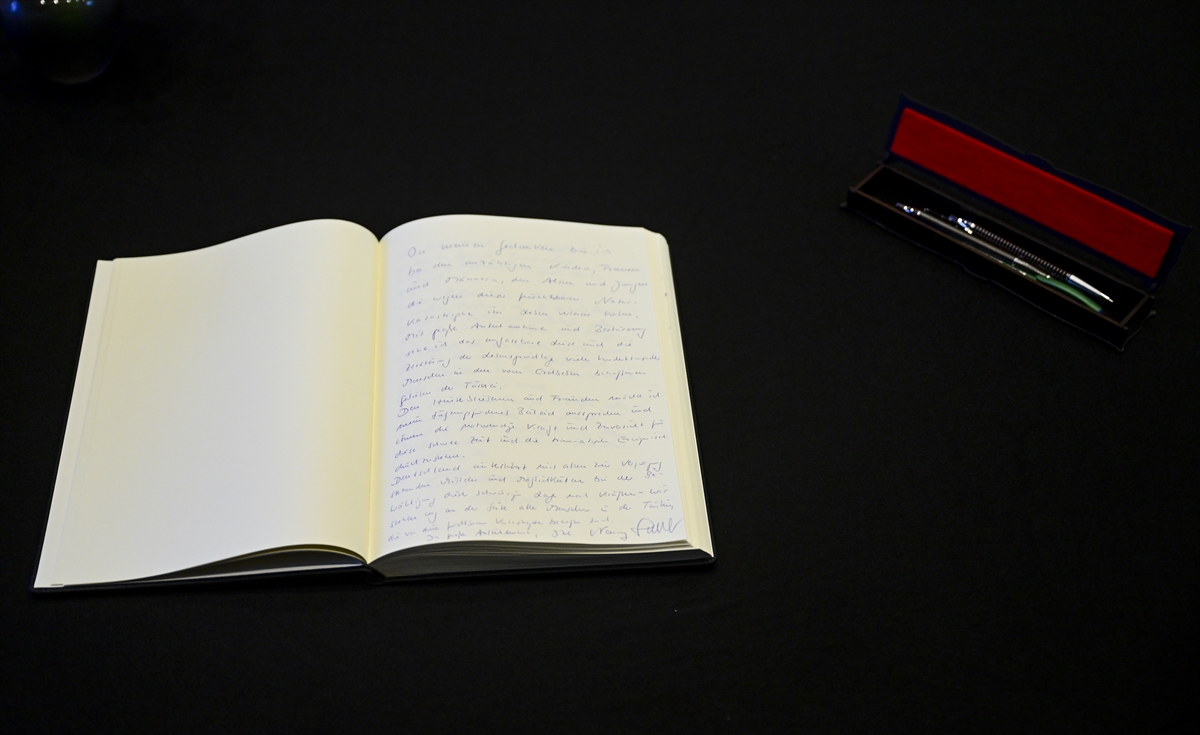 In meinen Gedanken bin ich
bei den unzähligen Kindern, Frauen
und Männern, den Alten und Jungen
die wegen dieser furchtbaren Natur-
katastrophe ihr Leben verloren haben.
Mit großer Anteilnahme und Bestürzung
sehe ich das unfassbare Leid und die
Zerstörung der Lebensgrundlage vieler hunderttausender
Menschen in den vom Erdbeben betroffenen
Gebieten der Türkei.
Den Hinterbliebenen und Freunden möchte ich
mein tiefempfundenes Beileid aussprechen und
ihnen die notwendige Kraft und Zuversicht für
diese schwere Zeit und die traumatischen Ereignisse
durchzustehen.
Deutschland unterstützt mit allen zur Verfü
stehenden Mitteln und Möglichkeiten bei der Be-
wältigung dieser schwierigen Lage nach Kräften - wir
stehen eng an der Seite aller Menschen in der Türkei,
die von diesen
In großer Anteilnahme, Ihre Nancy